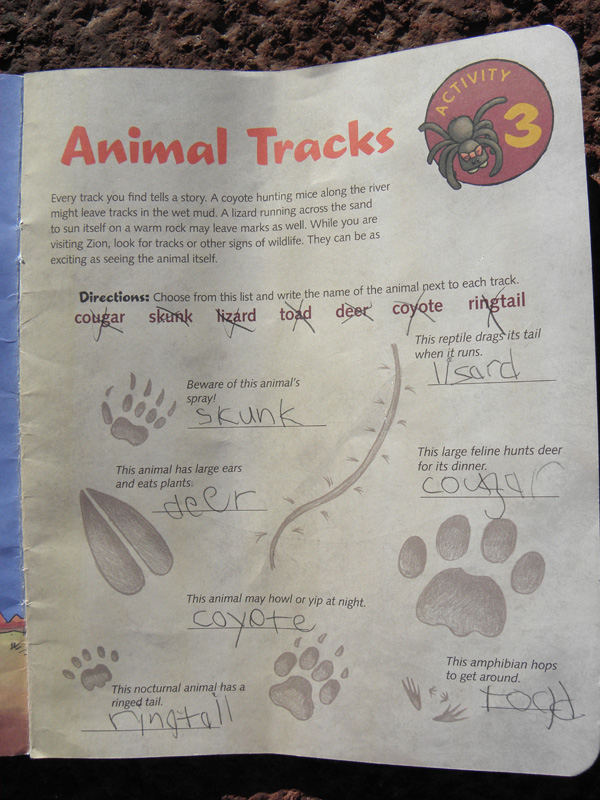 ACTIVITY
3
Animal Tracks
Every track you find tells a story. A coyote hunting mice along the river
might leave tracks in the wet mud. A lizard running across the sand
to sun itself on a warm rock may leave marks as well. While you are
visiting Zion, look for tracks or other signs of wildlife. They can be as
exciting as seeing the animal itself.
Directions: Choose from this list and write the name of the animal next to each track.
cougar skunk lizard toad deer coyote ringtail
This reptile drags its tail
when it runs.
lisard
Beware of this animal's
spray!
skunk
This large feline hunts deer
for its dinner.
cougar
This animal has large ears
and eats plants.
deer
This animal may howl or yip at night.
coyote
This amphibian hops
to get around.
toad
This nocturnal animal has a
ringed tail.
ringtail